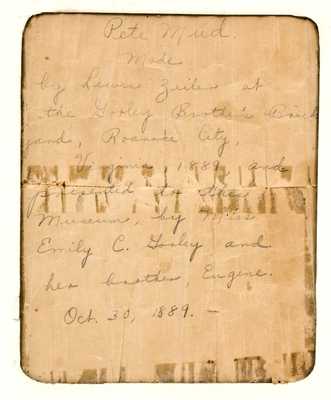 Pete Mud.
Made
by Lewis Zeiler at
the Gooley Brother's Brick
yard, Roanoke City,
Virginia, 1889, and
presented to the
Museum, by Miss
Emily C. Gooley and
her brother, Eugene.
Oct. 30, 1889. –